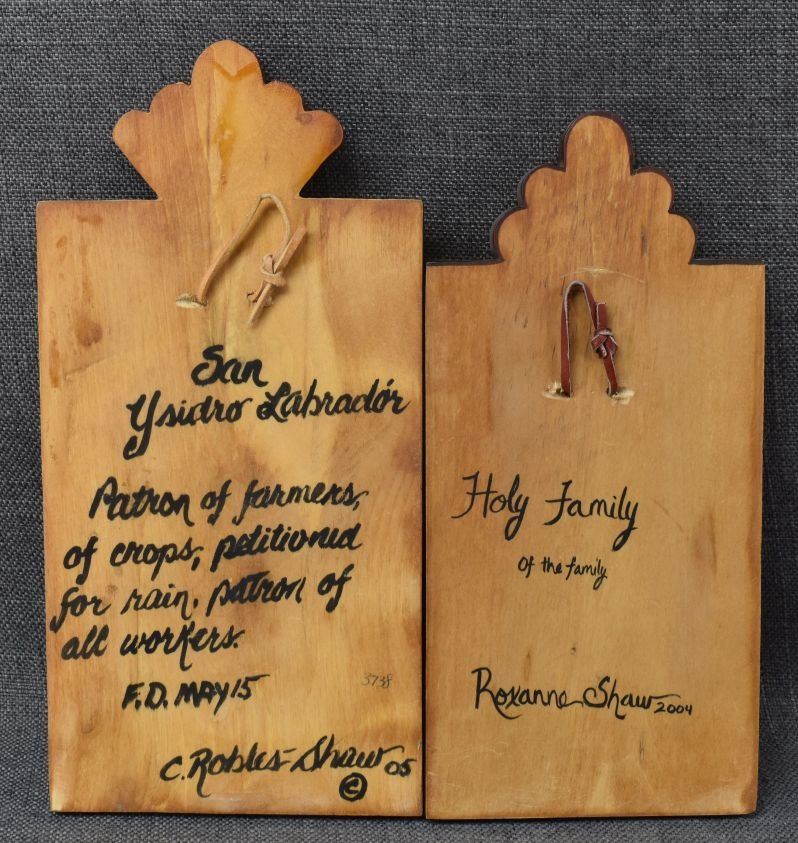 San
Ysidro Labradór
Patron of farmers,
of crops, petitioned
for rain. patron of
all workers.
F.D. MAY 15
3738
C. Robles-Shaw 05
©
Holy Family
Of the family
Roxanne Shaw 2004